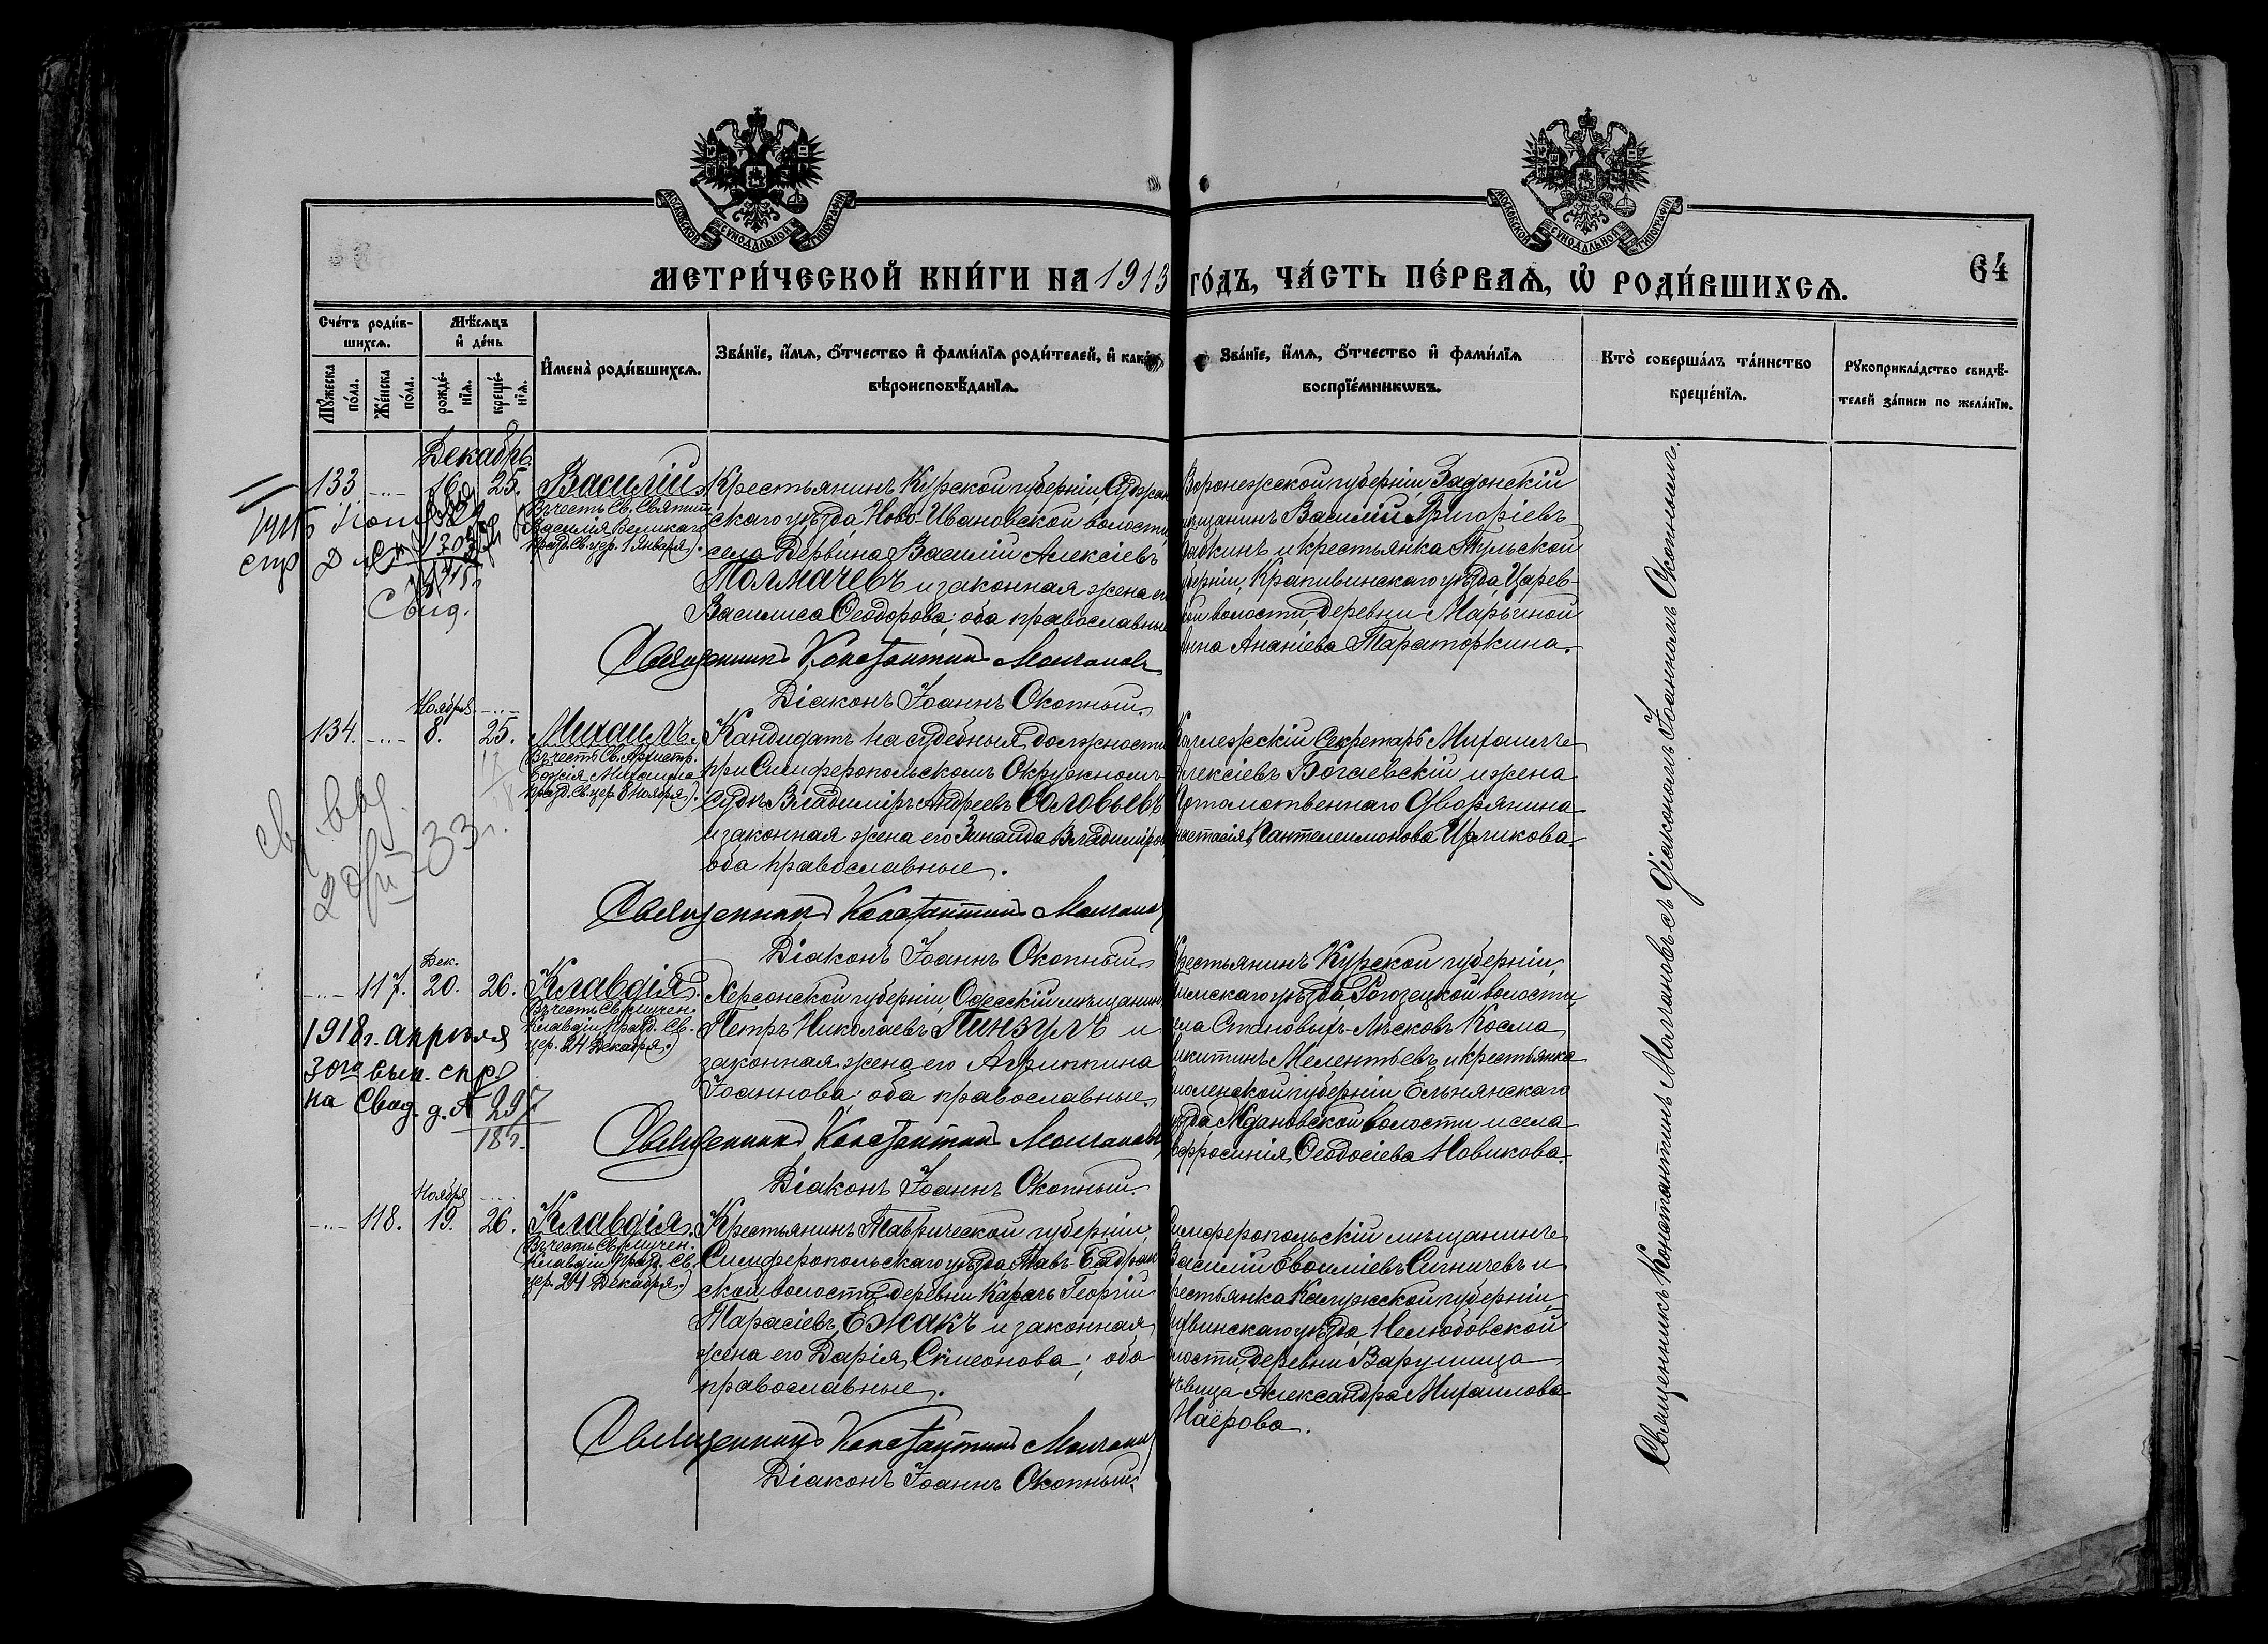 МОСКОВСКОЙ СѴНОДАЛЬНОЙ ТИПОГРАФІИ
МОСКОВСКОЙ СѴНОДАЛЬНОЙ ТИПОГРАФІИ
МЕТРИ́ЧЕСКОЙ КНИ́ГИ НА 1913 ГО́ДЪ, ЧА́СТЬ ПЕ́РВАѦ, Ѡ҆ РОДИ́ВШИХСѦ.
64
Сче́тъ роди́в-
шихсѧ.
Мѣ́сѧцъ
и҆ де́нь
Мꙋ́жеска
по́ла.
Же́нска
по́ла.
рожде́-
нїѧ.
креще́-
нїѧ.
И҆мена̀ роди́вшихсѧ.
Зва́нїе, и҆́мѧ, ѻ҆́тчество и҆ фами́лїѧ роди́телей, и҆ како́гѡ
вѣроисповѣ́данїѧ.
Зва́нїе, и҆́мѧ, ѻ҆́тчество и҆ фами́лїѧ
воспрїе́мникѡвъ.
Кто̀ соверша́лъ та́инство
креще́нїѧ.
Рꙋкоприкла́дство свидѣ́-
телей за́писи по жела́нїю.
Декабрь.
133. -..- 16. 25. Василій.
(Въ честь Св. Святит.
Василія Великаго
празд. Св. цер. 1 Января).
Крестьянинъ Курской губерніи, Суджан
скаго уѣзда, Ново-Ивановской волости,
села Дервина, Василій Алексіевъ
Толмачевъ и законная жена его
Василиса Ѳеодорова; оба православные
Священникъ Константинъ Молчановъ
Діаконъ Іоаннъ Окопный.
Воронежской губерніи, Задонскій
мѣщанинъ Василій Григоріевъ
и крестьянка Тульской
губерніи, Крапивинскаго уѣзда, Царев-
ской волости, деревни Марьиной
Анна Ананіева Тараторкина.
Свид.
Ноября -..-
134. -..- 8. 25. Михаилъ.
(Въ честь Св. Архистр.
Божія Михаила
празд. Св. цер. 8 Ноября).
Кандидатъ на судебныя должности
при Симферопольскомъ Окружномъ
Судѣ Владиміръ Андреевъ Соловьевъ
и законная жена его Зинаида Владимірова
оба православные.
Священникъ Константинъ Молчановъ
Діаконъ Іоаннъ Окопный.
Коллежскій Секретарь Михаилъ
Алексіевъ Богаевскій и жена
Потомственнаго Дворянина
Анастасія Пантелеимонова Цуликова.
Дек.
-..- 117. 20. 26. Клавдія.
(Въ честь Св. мучен.
Клавдіи празд. Св.
цер. 24 Декабря.)
Херсонской губерніи, Одесскій мѣщанинъ
Петръ Николаевъ Пинзулъ и
законная жена его Агриппина
Іоаннова; оба православные.
Священникъ Константинъ Молчановъ
Діаконъ Іоаннъ Окопный.
Крестьянинъ Курской губерніи,
уѣзда, Рогозецкой волости,
села Становыхъ-Лѣсковъ Косма
Никитинъ Мелентьевъ и крестьянка
Смоленской губерніи Ельнянскаго
уѣзда Ждановской волости и села
Евфросинія Ѳеодосіева Новикова.
1918 г. апрѣля
30го выд. спр.
на Свид. д. № 297
18 г.
Ноября -..-
-..- 118. 19. 26. Клавдія.
(Въ честь Св. мучен.
Клавдіи празд. Св.
цер. 24 Декабря.)
Крестьянинъ Таврической губерніи,
Симферопольскаго уѣзда, Тав-Бадрак
ской волости, деревни Карачъ Георгій
Тарасіевъ Ежакъ и законная
жена его Дарія Сѵмеонова; оба
православные.
Священникъ Константинъ Молчановъ
Діаконъ Іоаннъ Окопный.
Симферопольскій мѣщанинъ
Василій Евѳиміевъ Сигничевъ и
крестьянка Калужской губерніи,
Лихвинскаго уѣзда, Нелюбовской
волости, деревни Варушица
дѣвица Александра Михаилова
Маёрова.
Священникъ Константинъ Молчановъ съ діакономъ Іоанномъ Окопнымъ.